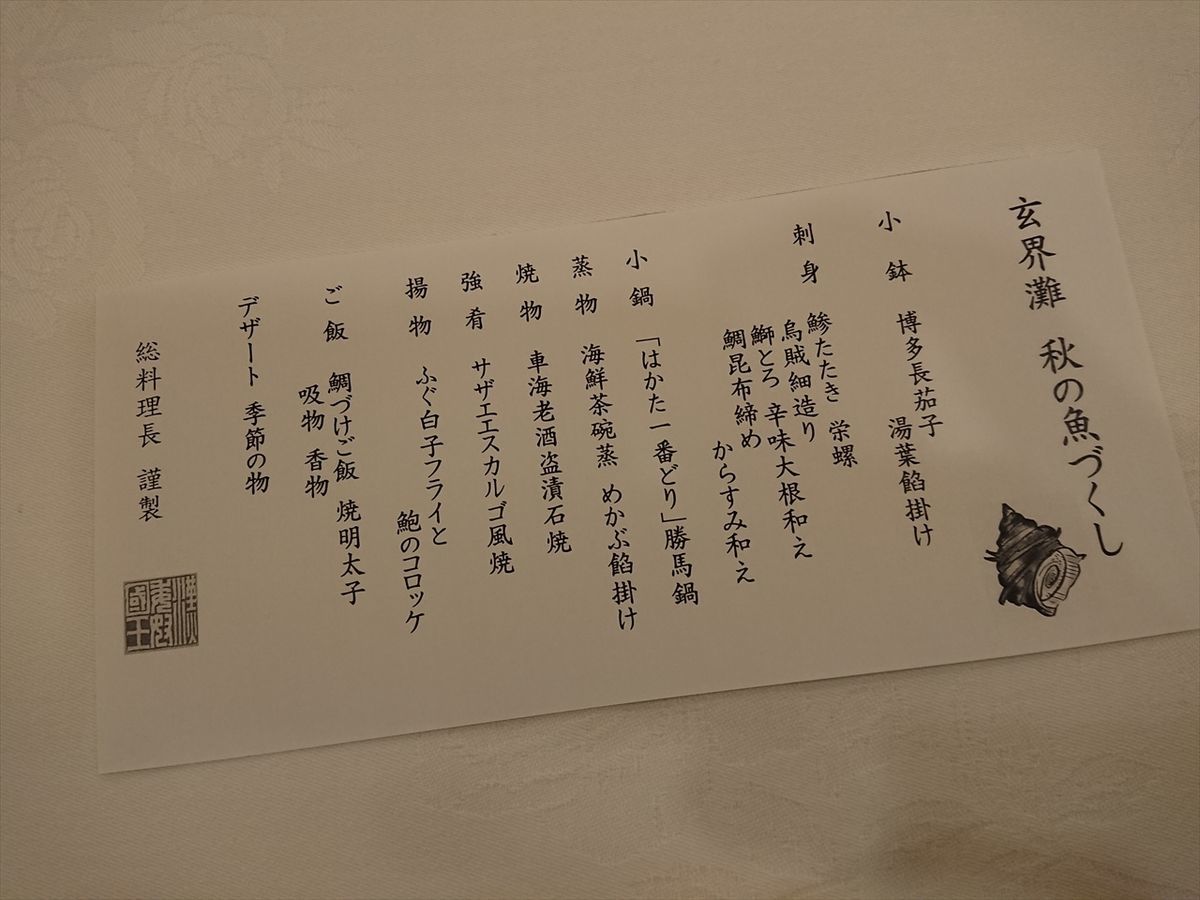 玄界灘 秋の魚づくし
小鉢 博多長茄子
湯葉餡掛け
刺身 鯵たたき 栄螺
烏賊細造り
鰤とろ 辛味大根和え
鯛昆布締め
からすみ和え
小鍋 「はかた一番どり」勝馬鍋
蒸物 海鮮茶碗蒸 めかぶ餡掛け
焼物 車海老酒盗漬石焼
強肴 サザエエスカルゴ風焼
揚物 ふぐ白子フライと
鮑のコロッケ
ご飯 鯛づけご飯 焼明太子
吸物 香物
デザート 季節の物
総料理長 謹製
漢委奴國王